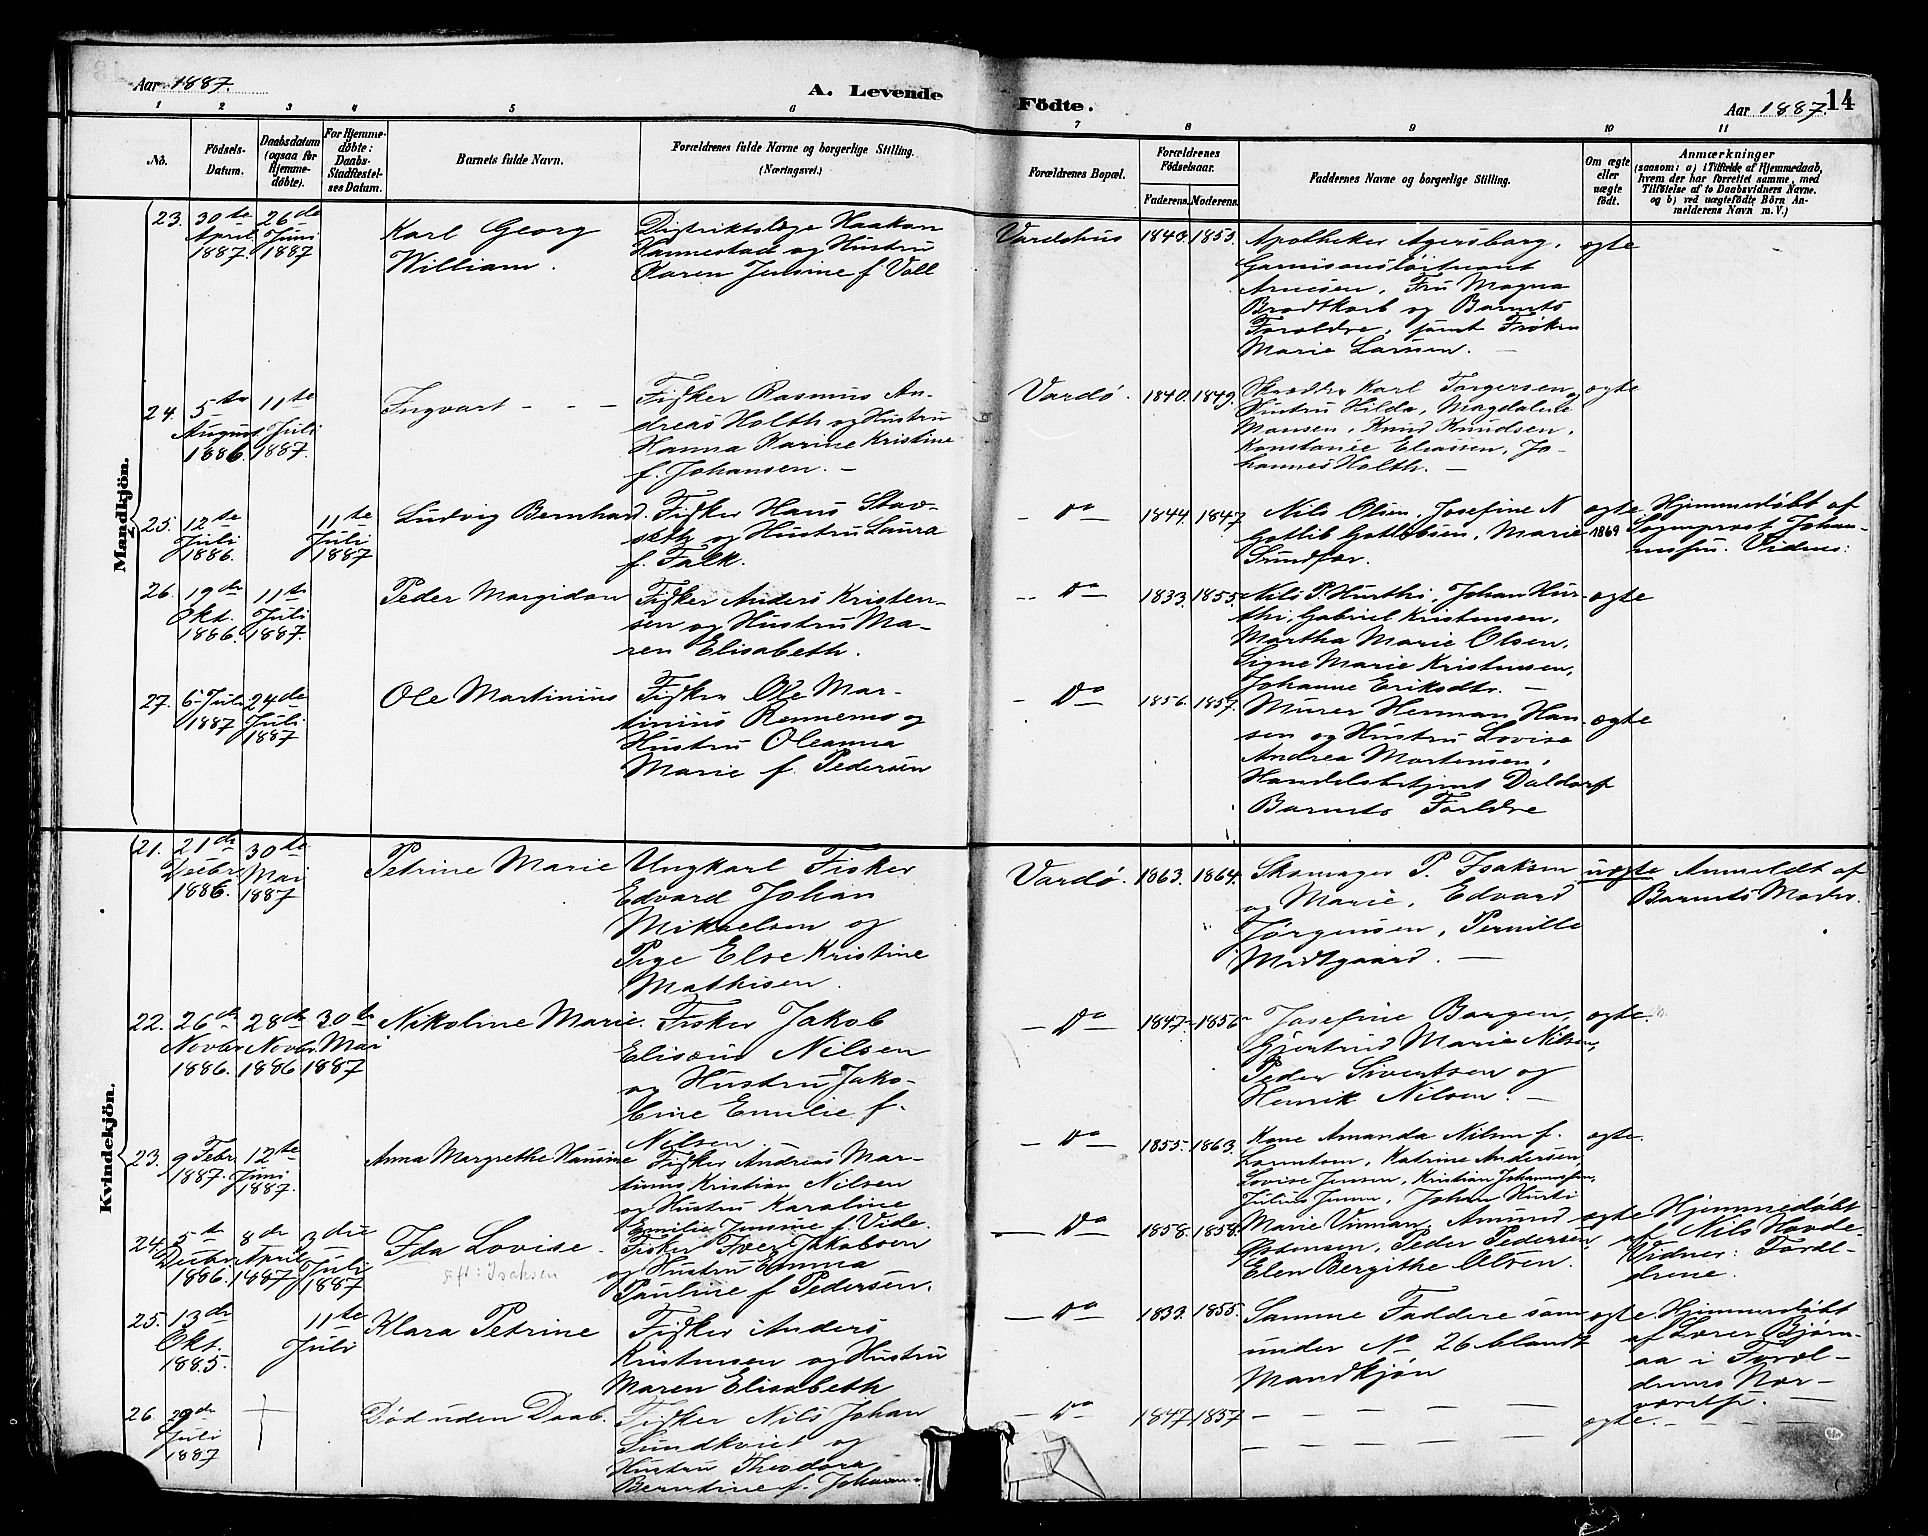 Aar 1887.
A. Levende
Födte.
Aar 1887.
14
1 2 3 4 5 6 7 8 9 10 11
No.
Födsels-
Datum.
Daabsdatum
(ogsaa for
Hjemme-
döbte).
For Hjemme-
döbte:
Daabs-
Stadfæstel-
ses Datum.
Barnets fulde Navn.
Forældrenes fulde Navne og borgerlige Stilling.
(Næringsvei.)
Forældrenes Bopæl.
Forældrenes
Födselsaar.
Faderens. Moderens.
Faddernes Navne og borgerlige Stilling.
Om ægte
eller
uægte
födt.
Anmærkninger
(saasom: a) i Tilfælde af Hjemmedaab,
hvem der har forrettet samme, med
Tilföielse af to Daabsvidners Navne.
og b) ved uægtefödte Börn An-
melderens Navn m. V.)
Mandkjön.
23.
30te
April
1887.
26de
Juni
1887
Karl Georg
William.
Distriktslæge Haakon
Hannestad og Hustru
Karen Jensine f. Voll
Vardöhus
1840. 1853.
Apotheker Agersborg,
Garnisonslöitnant
Arnesen, Fru Magna
Brodtkorb og Barnets
Forældre, samt Frøken
Marie Larssen. —
ægte
24.
5te
August
1886.
11te
Juli
1887.
Ingvart - - -
Fisker Rasmus An-
dreas Holth og Hustru
Hanna Karine Kristine
f. Johansen. —
Vardö.
1840. 1849.
Skrædder Karl Torgersen,
Hustru Hilda, Magdalene
Monsen, Knud Knudsen,
Konstance Eliassen, Jo-
hannes Holth. —
ægte
25.
12te
Juli
1886.
11te
Juli
1887
Ludvig Bernhard.
Fisker Hans Stav-
sæth og Hustru Laura
f. Falk.
— Do —
1844. 1847
Nils Olsen, Josefine N
Gotlib Gotlibsen, Marie
Sundfør.
ægte
1869
Hjemmedöbt af
Sogneprest Johan-
nessen. Vidner:
26.
19de
Okt.
1886.
11te
Juli
1887.
Peder Margidon
Fisker Anders Kristen-
sen og Hustru Ma-
ren Elisabeth.
-- Do —
1833. 1855.
Nils P. Hurthi, Johan Hur-
thi, Gabriel Kristensen,
Martha Marie Olsen,
Signe Marie Kristensen,
Johanne Eriksdtr. —
ægte
27.
6 Juli
1887
24de
Juli
1887
Ole Martinius
Fisker Ole Mar-
tinius Rennemo og
Hustru Oleanna
Marie f. Pedersen
- Do —
1856. 1857.
Murer Herman Han-
sen og Hustru Lovise
Andrea Mortensen,
Handelsbetjent Daldorf
Barnets Forældre
ægte
Kvindekjön.
21.
21de
Decbr
1886.
30te
Mai
1887
Petrine Marie
Ungkarl Fisker
Edvard Johan
Mikaelsen og
Pige Else Kristine
Mathisen.
Vardö.
1863. 1864.
Skomager P. Isaksen
og Marie, Edvard
Jörgensen, Pernille
Midtgaard. —
uægte
Anmeldt af
Barnets Moder.
22.
26de
Novbr
1886.
28de
Novbr.
1886
30te
Mai
1887
Nikoline Marie.
Fisker Jakob
Elisæus Nilsen
og Hustru Jako-
bine Emilie f.
Nilsen.
— Do —
1847- 1856-
Josefine Borgen,
Gjertrud Marie Nilsen,
Peder Sivertsen og
Henrik Nilsen. —
ægte.
23.
9 Febr
1887.
12te
Juni
1887.
Anna Margrethe Hansine
Fisker Andreas Mar-
tinus Kristian Nilsen
og Hustru Karoline
Emilie Jensine f. Vide.
— Do —
1855. 1863.
Kone Amanda Nilsen f.
Lorentsen, Katrine Andersen
Lovise Jensen, Kristian Johannessen,
Julius Jensen, Johan Hurti
ægte.
24.
5te
Decbr
1886.
8de
April
1887
3die
Juli
1887
Ida Lovise.
gift: Isaksen
Fisker Iver Jakobsen
og Hustru Emma
Pauline f. Pedersen.
— Do —
1858. 1858.
Marie Vinman, Amund
Peder Pedersen,
Elen Bergithe Olsen.
ægte
Hjemmedöbt
af Nils Hovde
Vidner: Foræl-
drene.
25.
13de
Okt.
1885.
11te
Juli
Klara Petrine
Fisker Anders
Kristensen og Hustru
Maren Elisabeth
— Do —
1833. 1855.
Samme Faddere som
under No 26 blandt
Mandkjøn
ægte.
Hjemmedöbt
af Lærer Bjørn-
aa i Foræl-
drenes Nær-
værelse.
26.
29de
Juli
1887
†
Död uden Daab.
Fisker Nils Johan
Sundkvist og
Hustru Theodora
Berntine f. Johanne
— Do —
1847 1857
— — — — —
— — — — —
ægte. -